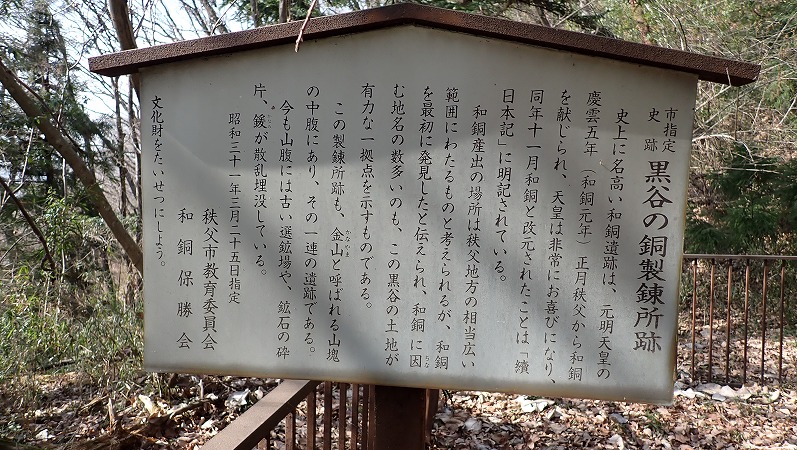 市指定
史跡
黒谷の銅製錬所跡
史上に名高い和銅遺跡は、元明天皇の
慶雲五年（和銅元年）正月秩父から和銅
を献じられ、天皇は非常にお喜びになり、
同年十一月和銅と改元されたことは「續
日本記」に明記されている。
和銅産出の場所は秩父地方の相当広い
範囲にわたるものと考えられるが、和銅
を最初に発見したと伝えられ、和銅に因
む地名の数多いのも、この黒谷の土地が
有力な一拠点を示すものである。
この製錬所跡も、金山と呼ばれる山塊
の中腹にあり、その一連の遺跡である。
今も山腹には古い選鉱場や、鉱石の砕
片、鍰が散乱埋没している。
昭和三十一年三月二十五日指定
秩父市教育委員会
和銅保勝会
文化財をたいせつにしよう。